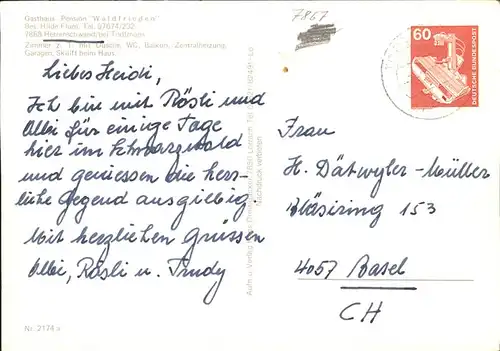 Gasthaus Pension "Waldfrieden"
Bes. Hilde Flum, Tel. 07674/232
7868 Herrenschwand bei Todtmoos
Zimmer z. T. mit Dusche, WC, Balkon, Zentralheizung
Garagen, Skilift beim Haus
7867
60
DEUTSCHE BUNDESPOST
Liebes Heidi,
Ich bin mit Rösli und
Albi für einige Tage
hier im Schwarzwald
und geniessen die herr-
liche Gegend ausgiebig.
Mit herzlichen Grüssen
Albi, Rösli u. Trudy
Nachdruck verboten
Frau
H. Dätwyler-Müller
Bläsiring 153
4057 Basel
CH
Nr. 2174